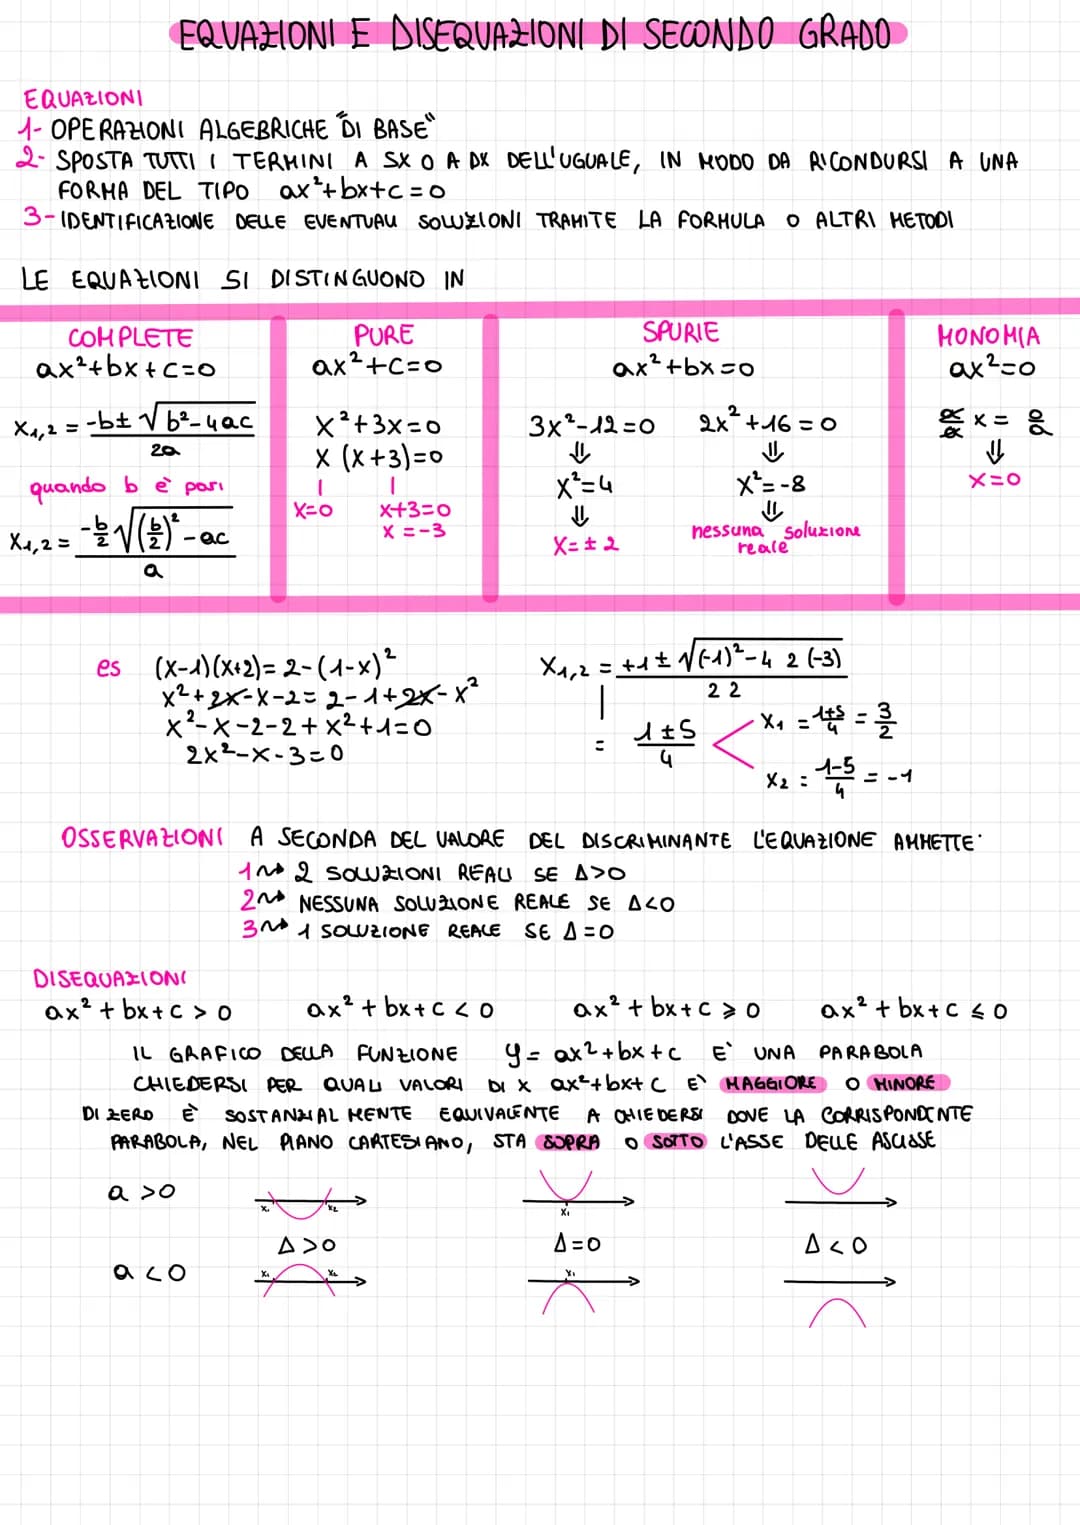 EQUAZIONI E DISEQUAZIONI DI SECONDO GRADO
EQUAZIONI
1- OPERAZIONI ALGEBRICHE "DI BASE"
2- SPOSTA TUTTI I TERMINI A SX O A DX DELL'UGUALE, IN MODO DA RICONDURSI A UNA
FORMA DEL TIPO ax²+bx+c=0
3- IDENTIFICAZIONE DELLE EVENTUALI SOLUZIONI TRAMITE LA FORMULA O ALTRI METODI
LE EQUAZIONI SI DISTINGUONO IN
COMPLETE
ax²+bx+c=0
x1,2 = -b± √b²-4ac
2a
quando b è pari
x1,2 = -b/2 √(b/2)²-ac
a
PURE
ax²+c=0
x²+3x=0
x (x+3)=0
x=0 x+3=0
x=-3
SPURIE
ax²+bx=0
3x²-12=0 2x²+16=0
⇓ ⇓
x²=4 x²=-8
⇓ ⇓
x=±2 nessuna soluzione
reale
MONOMIA
ax²=0
a/a x = 0/a
⇓
x=0
es (x-1)(x+2)= 2-(1-x)²
x²+2x-x-2= 2-1+2x-x²
x²-x-2-2+x²+1=0
2x²-x-3=0
x1,2 = +1± √(-1)²-4 2 (-3)
2 2
= 1±5
4
x1 = 1+5/4 = 3/2
x2 = 1-5/4 = -1
OSSERVAZIONI A SECONDA DEL VALORE DEL DISCRIMINANTE L'EQUAZIONE AMMETTE:
1⇝ 2 SOLUZIONI REALI SE Δ>0
2⇝ NESSUNA SOLUZIONE REALE SE Δ<0
3⇝ 1 SOLUZIONE REALE SE Δ=0
DISEQUAZIONI
ax²+bx+c>0 ax²+bx+c<0 ax²+bx+c⩾0 ax²+bx+c⩽0
IL GRAFICO DELLA FUNZIONE y= ax²+bx+c E' UNA PARABOLA
CHIEDERSI PER QUALI VALORI DI X ax²+bx+c E' MAGGIORE O MINORE
DI ZERO È SOSTANZIALMENTE EQUIVALENTE A CHIEDERSI DOVE LA CORRISPONDENTE
PARABOLA, NEL PIANO CARTESIANO, STA SOPRA O SOTTO L'ASSE DELLE ASCISSE
a>0
x1 x2 x1
Δ>0 Δ=0 Δ<0
a<0
x1 x2 x1